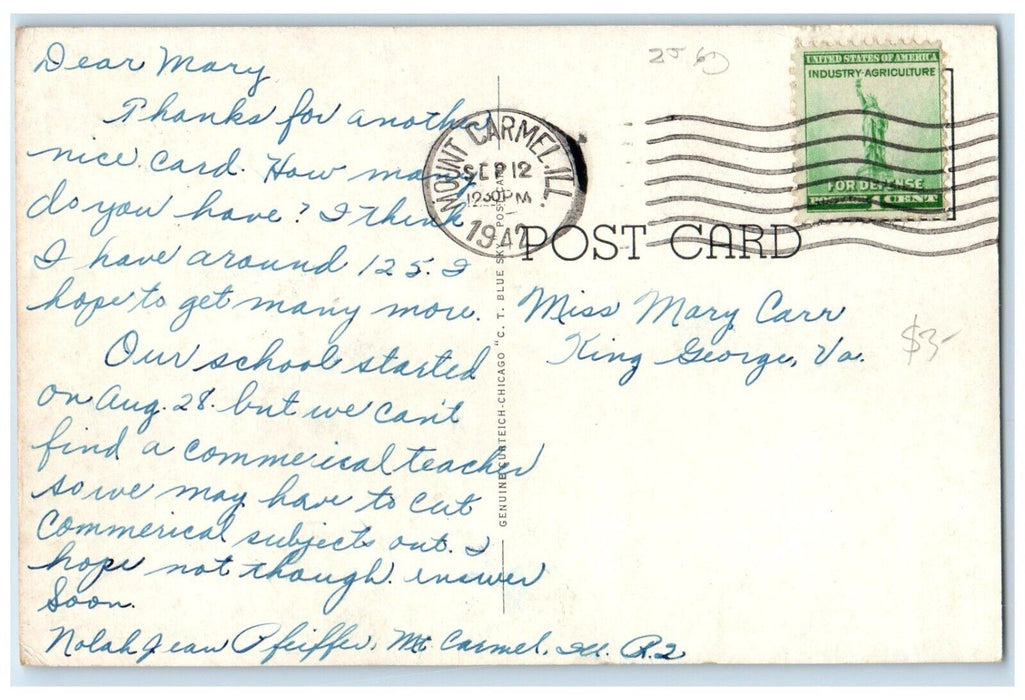 Dear Mary
Thanks for another
nice card. How many
do you have? I think
I have around 125. I
hope to get many more.
Our school started
on Aug. 28. but we can't
find a commerical teacher
so we may have to cut
Commerical subjects out. I
hope not though. answer
Soon.
Nolah Jean Pfeiffer, Mt Carmel, Ill. R.2
GENUINE CURTEICH-CHICAGO "C. T. BLUE SKY" POST CARD
MOUNT CARMEL, ILL.
SEP 12
12 30 PM
1942
UNITED STATES OF AMERICA
INDUSTRY-AGRICULTURE
FOR DEFENSE
POSTAGE 1 CENT
POST CARD
Miss Mary Carr
King George, Va.
$3-